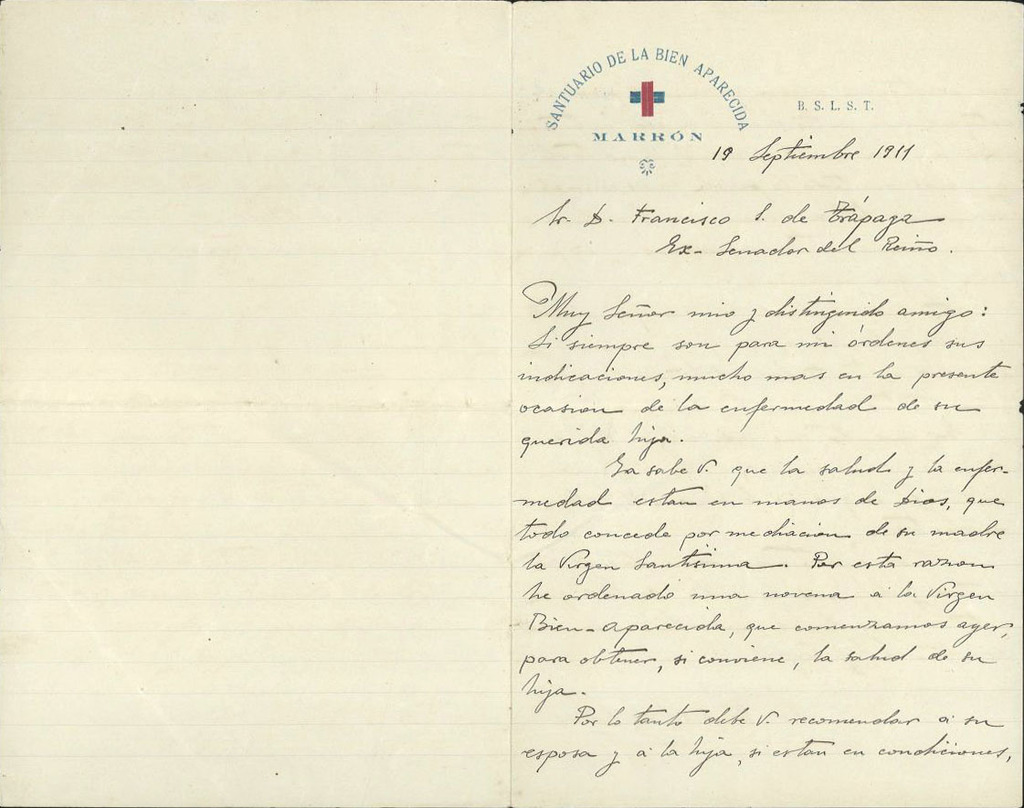 SANTUARIO DE LA BIEN APARECIDA
MARRÓN
B. S. L. S. T.
19 Septiembre 1911
Sr. D. Francisco S. de Trápaga
Ex-Senador del Reino.
Muy Señor mio y distinguido amigo:
Si siempre son para mi órdenes sus
indicaciones, mucho mas en la presente
ocasion de la enfermedad de su
querida hija.
Ya sabe V. que la salud y la enfer-
medad estan en manos de Dios, que
todo concede por mediacion de su madre
la Virgen Santisima. Por esta razon
he ordenado una novena á la Virgen
Bien-Aparecida, que comenzamos ayer,
para obtener, si conviene, la salud de su
hija.
Por lo tanto debe V. recomendar á su
esposa y á la hija, si estan en condiciones,